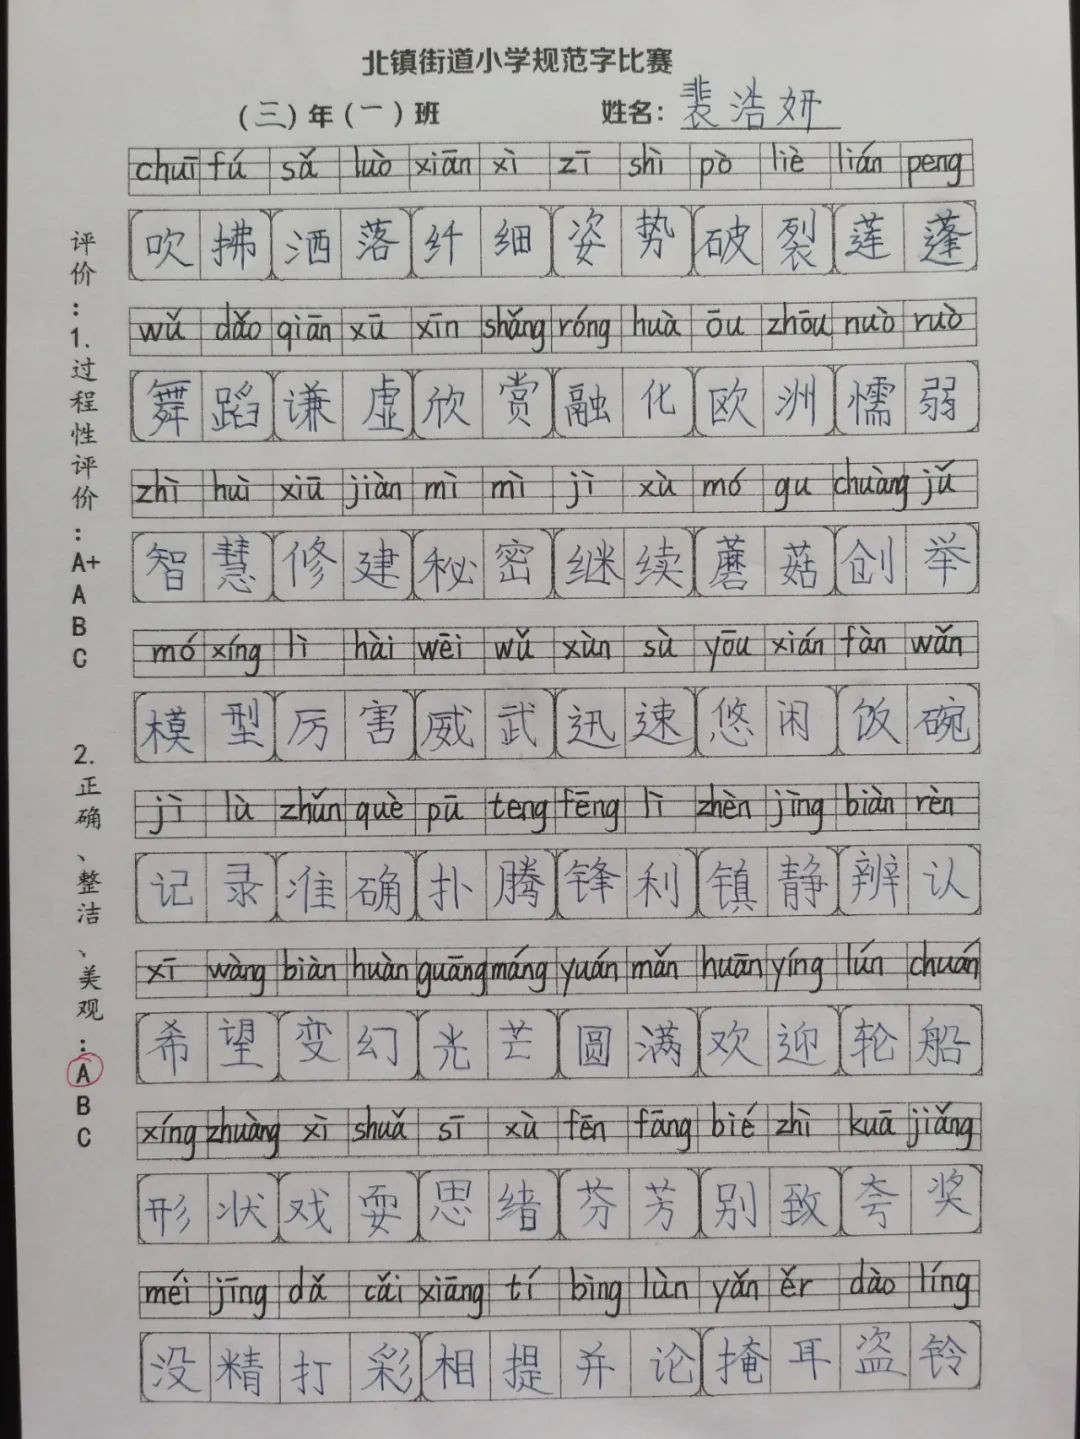 北镇街道小学规范字比赛
(三)年(一)班 姓名：裴浩妍
chuī fú sǎ luò xiān xì zī shì pò liè lián peng
吹拂 洒落 纤细 姿势 破裂 莲蓬
wǔ dǎo qiān xū xīn shǎng róng huà ōu zhōu nuò ruò
舞蹈 谦虚 欣赏 融化 欧洲 懦弱
zhì huì xiū jiàn mì mì jì xù mó gu chuàng jǔ
智慧 修建 秘密 继续 蘑菇 创举
mó xíng lì hài wēi wǔ xùn sù yōu xián fàn wǎn
模型 厉害 威武 迅速 悠闲 饭碗
jì lù zhǔn què pū teng fēng lì zhèn jìng biàn rèn
记录 准确 扑腾 锋利 镇静 辨认
xī wàng biàn huàn guāng máng yuán mǎn huān yíng lún chuán
希望 变幻 光芒 圆满 欢迎 轮船
xíng zhuàng xì shuǎ sī xù fēn fāng bié zhì kuā jiǎng
形状 戏耍 思绪 芬芳 别致 夸奖
méi jīng dǎ cǎi xiāng tí bìng lùn yǎn ěr dào líng
没精打彩 相提并论 掩耳盗铃
评价：1.过程性评价：A+ A B C
2.正确、整洁、美观：A B C